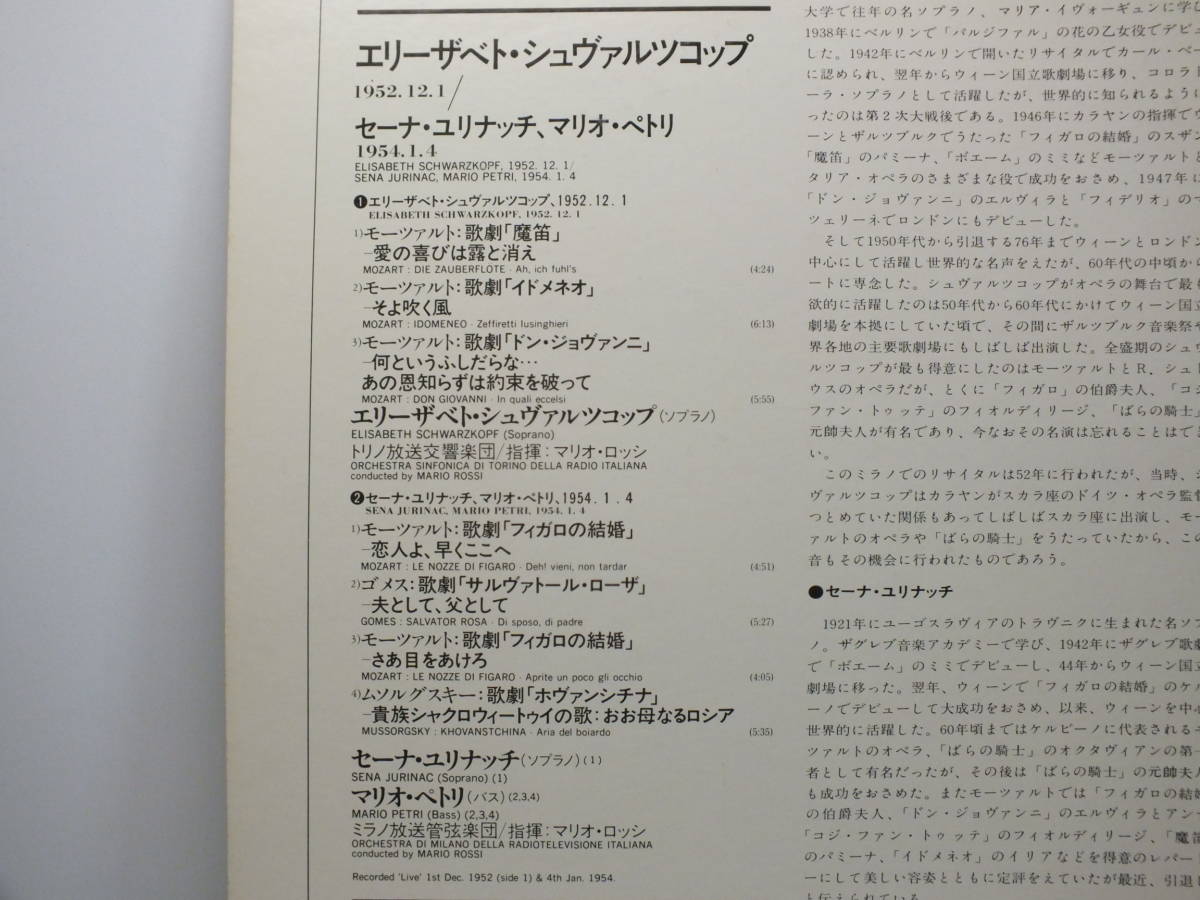 エリーザベト・シュヴァルツコップ
1952.12.1/
セーナ・ユリナッチ、マリオ・ペトリ
1954.1.4
ELISABETH SCHWARZKOPF, 1952. 12. 1/
SENA JURINAC, MARIO PETRI, 1954. 1. 4
❶エリーザベト・シュヴァルツコップ、1952.12.1
ELISABETH SCHWARZKOPF, 1952. 12. 1
1)モーツァルト:歌劇「魔笛」
–愛の喜びは露と消え
MOZART : DIE ZAUBERFLÖTE · Ah, ich fuhl's (4:24)
2)モーツァルト:歌劇「イドメネオ」
–そよ吹く風
MOZART : IDOMENEO · Zeffiretti lusinghieri (6:13)
3)モーツァルト:歌劇「ドン・ジョヴァンニ」
–何というふしだらな…
あの恩知らずは約束を破って
MOZART : DON GIOVANNI · In quali eccelsi (5:55)
エリーザベト・シュヴァルツコップ(ソプラノ)
ELISABETH SCHWARZKOPF (Soprano)
トリノ放送交響楽団/指揮:マリオ・ロッシ
ORCHESTRA SINFONICA DI TORINO DELLA RADIO ITALIANA
conducted by MARIO ROSSI
❷セーナ・ユリナッチ、マリオ・ペトリ、1954.1.4
SENA JURINAC, MARIO PETRI, 1954. 1. 4
1)モーツァルト:歌劇「フィガロの結婚」
–恋人よ、早くここへ
MOZART : LE NOZZE DI FIGARO · Deh! vieni, non tardar (4:51)
2)ゴメス:歌劇「サルヴァトール・ローザ」
–夫として、父として
GOMES : SALVATOR ROSA · Di sposo, di padre (5:27)
3)モーツァルト:歌劇「フィガロの結婚」
–さあ目をあけろ
MOZART : LE NOZZE DI FIGARO · Aprite un poco gli occhio (4:05)
4)ムソルグスキー:歌劇「ホヴァンシチナ」
–貴族シャクロウィートゥイの歌:おお母なるロシア
MUSSORGSKY : KHOVANSTCHINA · Aria del boiardo (5:35)
セーナ・ユリナッチ(ソプラノ)(1)
SENA JURINAC (Soprano) (1)
マリオ・ペトリ(バス)(2,3,4)
MARIO PETRI (Bass) (2,3,4)
ミラノ放送管弦楽団/指揮:マリオ・ロッシ
ORCHESTRA DI MILANO DELLA RADIOTELEVISIONE ITALIANA
conducted by MARIO ROSSI
Recorded 'Live' 1st Dec. 1952 (side 1) & 4th Jan. 1954.
大学で往年の名ソプラノ、マリア・イヴォーギュンに学び
1938年にベルリンで「パルジファル」の花の乙女役でデビュ
した。1942年にベルリンで開いたリサイタルでカール・ベー
に認められ、翌年からウィーン国立歌劇場に移り、コロラト
ーラ・ソプラノとして活躍したが、世界的に知られるように
ったのは第2次大戦後である。1946年にカラヤンの指揮でウ
ーンとザルツブルクでうたった「フィガロの結婚」のスザン
「魔笛」のパミーナ、「ボエーム」のミミなどモーツァルトと
タリア・オペラのさまざまな役で成功をおさめ、1947年に
「ドン・ジョヴァンニ」のエルヴィラと「フィデリオ」のマ
ツェリーネでロンドンにもデビューした。
そして1950年代から引退する76年までウィーンとロンドン
中心にして活躍し世界的な名声をえたが、60年代の中頃から
ートに専念した。シュヴァルツコップがオペラの舞台で最も
欲的に活躍したのは50年代から60年代にかけてウィーン国立
劇場を本拠にしていた頃で、その間にザルツブルク音楽祭や
界各地の主要歌劇場にもしばしば出演した。全盛期のシュヴ
ルツコップが最も得意にしたのはモーツァルトとR.シュト
ウスのオペラだが、とくに「フィガロ」の伯爵夫人、「コジ
ファン・トゥッテ」のフィオルディリージ、「ばらの騎士」
元帥夫人が有名であり、今なおその名演は忘れることはでき
い。
このミラノでのリサイタルは52年に行われたが、当時、シ
ヴァルツコップはカラヤンがスカラ座のドイツ・オペラ監督
つとめていた関係もあってしばしばスカラ座に出演し、モー
ァルトのオペラや「ばらの騎士」をうたっていたから、この
音もその機会に行われたものであろう。
●セーナ・ユリナッチ
1921年にユーゴスラヴィアのトラヴニクに生まれた名ソプ
ノ。ザグレブ音楽アカデミーで学び、1942年にザグレブ歌劇
で「ボエーム」のミミでデビューし、44年からウィーン国立
劇場に移った。翌年、ウィーンで「フィガロの結婚」のケル
ーノでデビューして大成功をおさめ、以来、ウィーンを中心
世界的に活躍した。60年頃まではケルビーノに代表されるモ
ツァルトのオペラ、「ばらの騎士」のオクタヴィアンの第一
者として有名だったが、その後は「ばらの騎士」の元帥夫人
も成功をおさめた。またモーツァルトでは「フィガロの結婚
の伯爵夫人、「ドン・ジョヴァンニ」のエルヴィラとアンナ
「コジ・ファン・トゥッテ」のフィオルディリージ、「魔笛
のパミーナ、「イドメネオ」のイリアなどを得意のレパート
ーにして美しい容姿とともに定評をえていたが最近、引退し
と伝えられている。